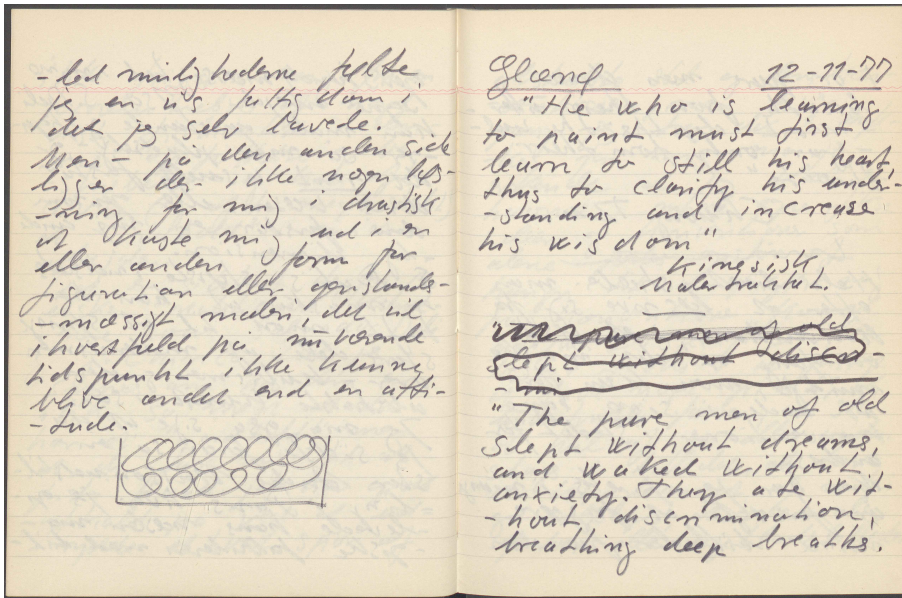 - led mulighederne følte
jeg en vis fattigdom i
det jeg selv lavede.
Men - på den anden side
ligger der ikke nogen løs-
-ning for mig i drastisk
at kaste mig ud i en
eller anden form for
figuration eller genstands-
-mæssigt maleri, det vil
ihvertfald på nuværende
tidspunkt ikke kunne
blive andet end en atti-
-tude.
Gland 12-11-77
"He who is learning
to paint must first
learn to still his heart,
thus to clarify his under-
-standing and increase
his wisdom"
Kinesisk
Malertraktat.
men of old
slept without discri-
-mi
"The pure men of old
slept without dreams,
and waked without
anxiety. They ate wit-
-hout discrimination,
breathing deep breaths.